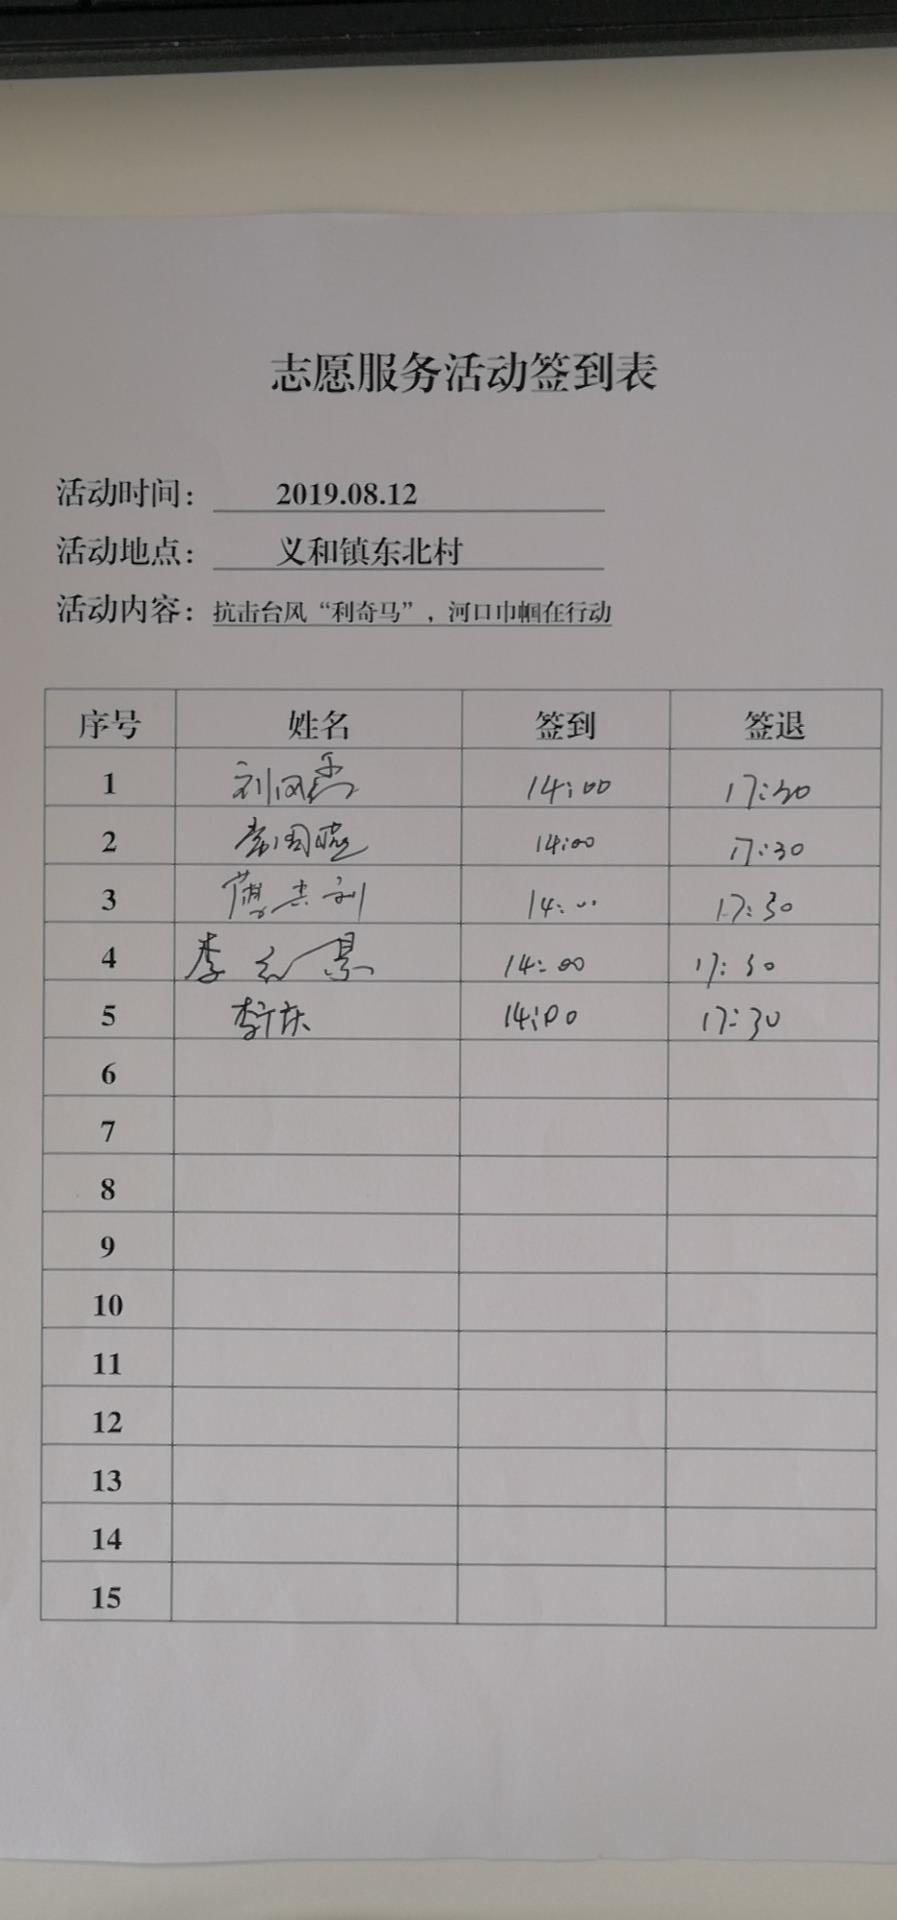 志愿服务活动签到表
活动时间： 2019.08.12
活动地点： 义和镇东北村
活动内容：抗击台风“利奇马”，河口巾帼在行动
序号 姓名 签到 签退
1 刘凤 14:00 17:30
2 常国 14:00 17:30
3 14:00 17:30
4 李 景 14:00 17:30
5 李 庆 14:00 17:30
6
7
8
9
10
11
12
13
14
15